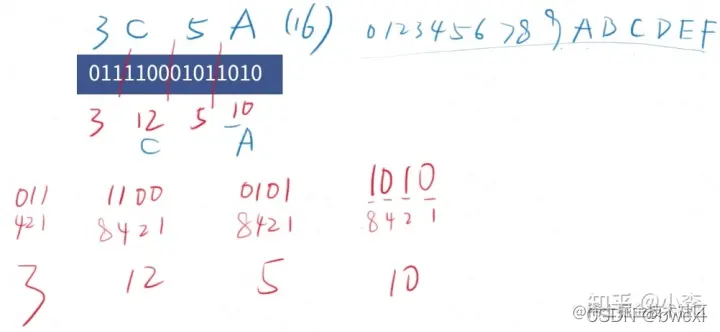 3 C 5 A (16) 0 1 2 3 4 5 6 7 8 9 A B C D E F
011110001011010
3 12 5 10
C A
011 1100 0101 1010
421 8421 8421 8421
3 12 5 10
知乎 @小森
CSDN @bwexi